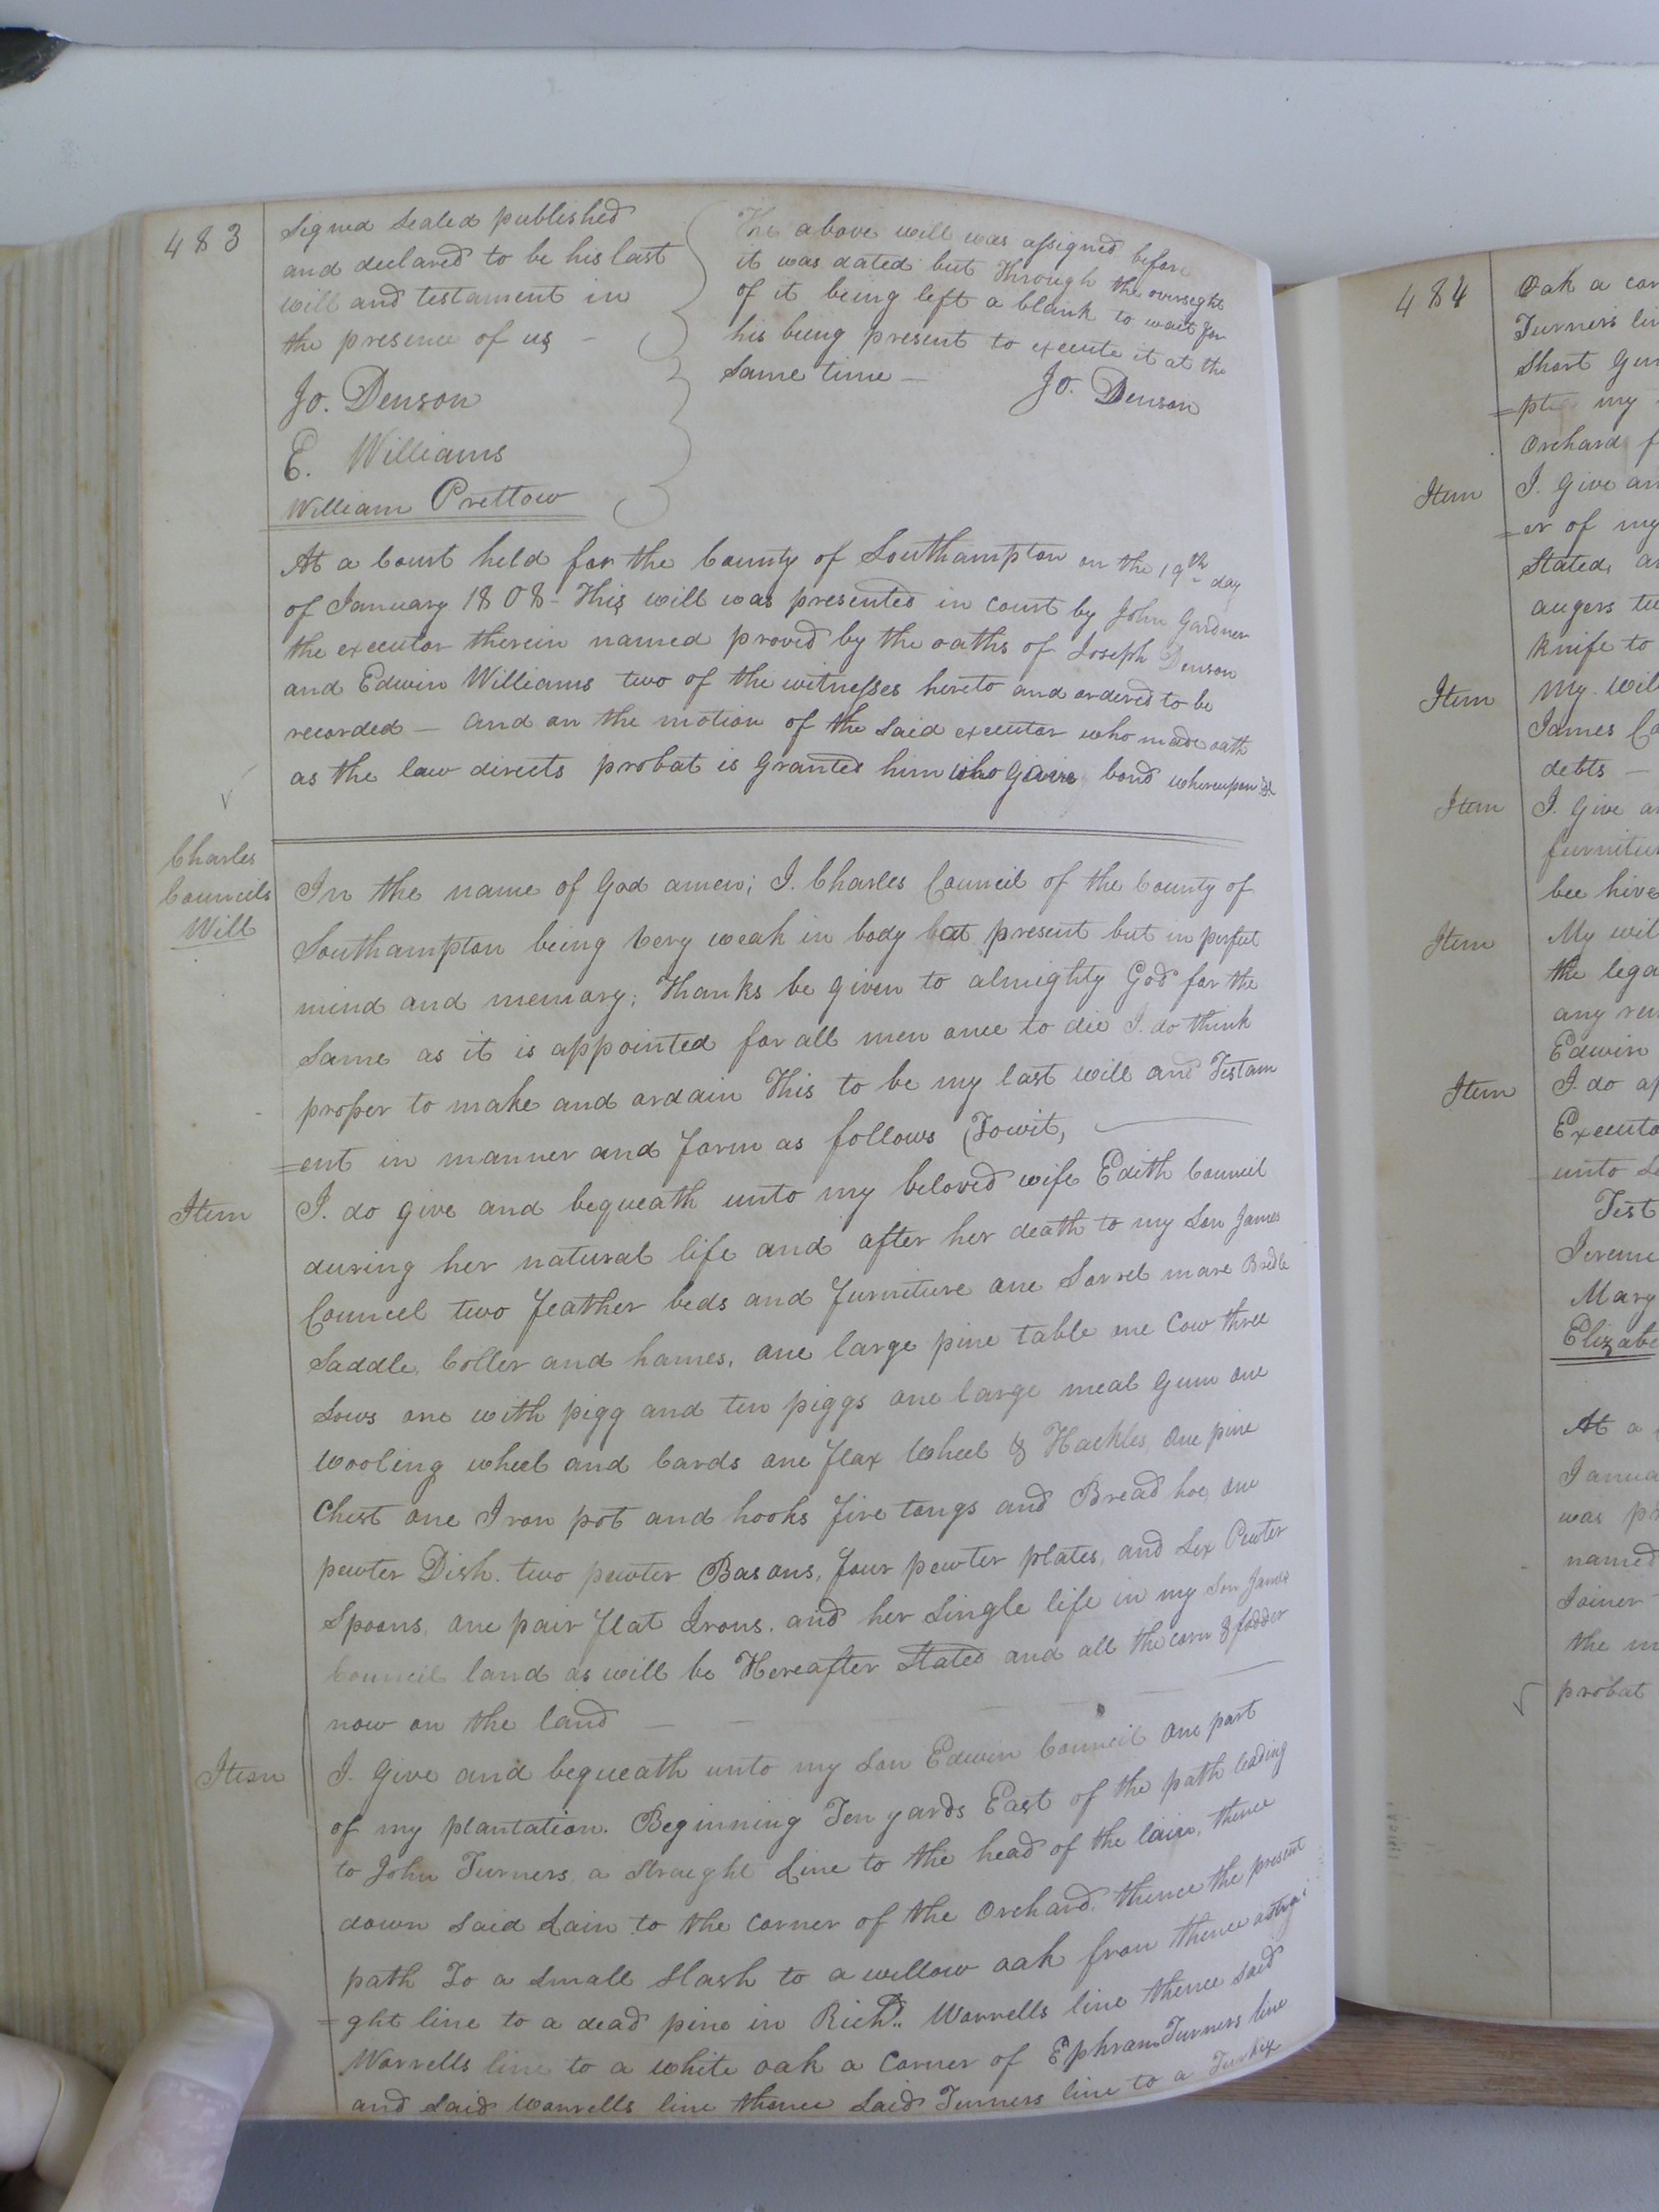 483
Signed Sealed published
and declared to be his last
will and testament in
the presence of us -
Jo. Denson
E. Williams
William Prettow
The above will was assigned before
it was dated but Through the oversight
of it being left a blank to wait for
his being present to execute it at the
same time -
Jo. Denson
At a Court held for the County of Southampton on the 19th day
of January 1808 - This will was presented in court by John Gardner
the executor therein named proved by the oaths of Joseph Denson
and Edwin Williams two of the witnesses hereto and ordered to be
recorded - and on the motion of the said executor who made oath
as the law directs probat is granted him who gave bond whereupon &c
Charles
Councils
Will
In the name of God amen; I. Charles Council of the County of
Southampton being very weak in body bat present but in perfect
mind and memory; Thanks be given to almighty God for the
same as it is appointed for all men once to die I. do think
proper to make and ordain This to be my last will and Testam
=ent in manner and form as follows (Towit,
Item
I. do give and bequeath unto my beloved wife Edith Council
during her natural life and after her death to my son James
Council two feather beds and furniture one Sorrel mare Bridle
Saddle, Coller and hames, one large pine table one Cow three
Sows one with pigg and ten piggs one large meal gum one
wooling wheel and Cards one flax wheel & Hackles, One pine
Chest one Iron pot and hooks fire tongs and Bread hoe, one
pewter Dish. two pewter Basons, four pewter plates, and Six Pewter
Spoons, one pair flat Irons. and her Single life in my Son James
Council land as will be Hereafter Stated and all the corn & fodder
now on the land
Item
I. Give and bequeath unto my Son Edwin Council One part
of my plantation. Beginning Ten yards East of the path leading
to John Turners, a Straeght Line to the head of the lain, thence
down said Lain to the corner of the Orchard. thence the present
path To a small slash to a willow oak from thence a
=ght line to a dead pine in Richd. Worrells line thence said
Worrells line to a white oak a Corner of Ephram Turners line
and said Worrells line thence said Turners line to a Turkix
484
Oak a
Turners
Short
=pt my
Orchard
Item
I. Give
=er of my
Stated,
augers
knife to
Item
My
James
debts -
Item
I. Give
bee hive
Item
My
the
any
Edwin
Item
I. do
unto
Test
Mary
At a
was
named
Joiner
the
probat